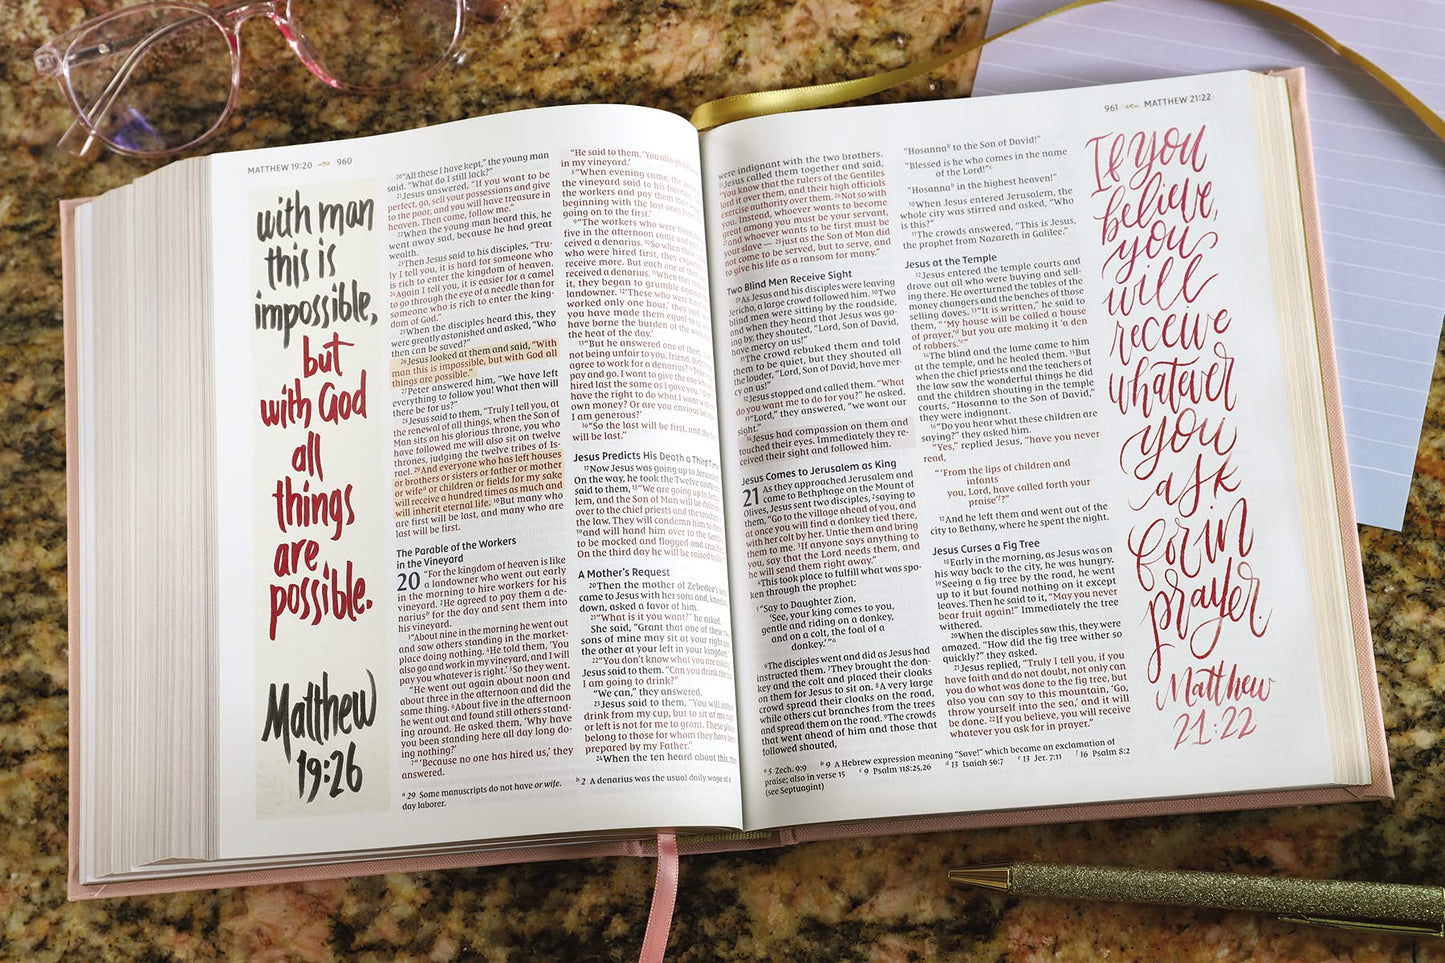 MATTHEW 19:20 960
with man
this is
impossible,
but
with God
all
things
are
possible.
Matthew
19:26
20"All these I have kept," the young man
said. "What do I still lack?"
21Jesus answered, "If you want to be
perfect, go, sell your possessions and give
to the poor, and you will have treasure in
heaven. Then come, follow me."
22When the young man heard this, he
went away sad, because he had great
wealth.
23Then Jesus said to his disciples, "Tru-
ly I tell you, it is hard for someone who
is rich to enter the kingdom of heaven.
24Again I tell you, it is easier for a camel
to go through the eye of a needle than for
someone who is rich to enter the king-
dom of God."
25When the disciples heard this, they
were greatly astonished and asked, "Who
then can be saved?"
26Jesus looked at them and said, "With
man this is impossible, but with God all
things are possible."
27Peter answered him, "We have left
everything to follow you! What then will
there be for us?"
28Jesus said to them, "Truly I tell you, at
the renewal of all things, when the Son of
Man sits on his glorious throne, you who
have followed me will also sit on twelve
thrones, judging the twelve tribes of Is-
rael. 29And everyone who has left houses
or brothers or sisters or father or mother
or wifea or children or fields for my sake
will receive a hundred times as much and
will inherit eternal life. 30But many who
are first will be last, and many who are
last will be first.
The Parable of the Workers
in the Vineyard
20 "For the kingdom of heaven is like
a landowner who went out early
in the morning to hire workers for his
vineyard. 2He agreed to pay them a de-
nariusb for the day and sent them into
his vineyard.
3"About nine in the morning he went out
and saw others standing in the market-
place doing nothing. 4He told them, 'You
also go and work in my vineyard, and I will
pay you whatever is right.' 5So they went.
"He went out again about noon and
about three in the afternoon and did the
same thing. 6About five in the afternoon
he went out and found still others stand-
ing around. He asked them, 'Why have
you been standing here all day long do-
ing nothing?'
7" 'Because no one has hired us,' they
answered.
"He said to them, 'You also go
in my vineyard.'
8"When evening came, the
the vineyard said to his
the workers and pay them
beginning with the last ones
going on to the first.'
9"The workers who were hired
five in the afternoon came and
ceived a denarius. 10So when
who were hired first, they
receive more. But each one of
received a denarius. 11When they
it, they began to grumble
landowner. 12'These who were
worked only one hour,' they
you have made them equal to
have borne the burden of the
the heat of the day.'
13"But he answered one of them,
not being unfair to you, friend.
agree to work for a denarius?
pay and go. I want to give the one
hired last the same as I gave you.
have the right to do what I want
own money? Or are you envious
I am generous?'
16"So the last will be first, and the
will be last."
Jesus Predicts His Death a Third Time
17Now Jesus was going up to
On the way, he took the Twelve
said to them, 18"We are going up to
lem, and the Son of Man will be
over to the chief priests and the
the law. They will condemn him to
19and will hand him over to the
to be mocked and flogged and
On the third day he will be raised to
A Mother's Request
20Then the mother of Zebedee's
came to Jesus with her sons and,
down, asked a favor of him.
21"What is it you want?" he asked.
She said, "Grant that one of these
sons of mine may sit at your right
the other at your left in your kingdom."
22"You don't know what you are asking,"
Jesus said to them. "Can you drink the
I am going to drink?"
"We can," they answered.
23Jesus said to them, "You will
drink from my cup, but to sit at my
or left is not for me to grant. These
belong to those for whom they have
prepared by my Father."
24When the ten heard about this, they
a 29 Some manuscripts do not have or wife.
b 2 A denarius was the usual daily wage of a
day laborer.
961 MATTHEW 21:22
were indignant with the two brothers.
25Jesus called them together and said,
"You know that the rulers of the Gentiles
lord it over them, and their high officials
exercise authority over them. 26Not so with
you. Instead, whoever wants to become
great among you must be your servant,
27and whoever wants to be first must be
your slave — 28just as the Son of Man did
not come to be served, but to serve, and
to give his life as a ransom for many."
Two Blind Men Receive Sight
29As Jesus and his disciples were leaving
Jericho, a large crowd followed him. 30Two
blind men were sitting by the roadside,
and when they heard that Jesus was go-
ing by, they shouted, "Lord, Son of David,
have mercy on us!"
31The crowd rebuked them and told
them to be quiet, but they shouted all
the louder, "Lord, Son of David, have mer-
cy on us!"
32Jesus stopped and called them. "What
do you want me to do for you?" he asked.
33"Lord," they answered, "we want our
sight."
34Jesus had compassion on them and
touched their eyes. Immediately they re-
ceived their sight and followed him.
Jesus Comes to Jerusalem as King
21 As they approached Jerusalem and
came to Bethphage on the Mount of
Olives, Jesus sent two disciples, 2saying to
them, "Go to the village ahead of you, and
at once you will find a donkey tied there,
with her colt by her. Untie them and bring
them to me. 3If anyone says anything to
you, say that the Lord needs them, and
he will send them right away."
4This took place to fulfill what was spo-
ken through the prophet:
5"Say to Daughter Zion,
'See, your king comes to you,
gentle and riding on a donkey,
and on a colt, the foal of a
donkey.' "a
6The disciples went and did as Jesus had
instructed them. 7They brought the don-
key and the colt and placed their cloaks
on them for Jesus to sit on. 8A very large
crowd spread their cloaks on the road,
while others cut branches from the trees
and spread them on the road. 9The crowds
that went ahead of him and those that
followed shouted,
"Hosannab to the Son of David!"
"Blessed is he who comes in the name
of the Lord!"c
"Hosannab in the highest heaven!"
10When Jesus entered Jerusalem, the
whole city was stirred and asked, "Who
is this?"
11The crowds answered, "This is Jesus,
the prophet from Nazareth in Galilee."
Jesus at the Temple
12Jesus entered the temple courts and
drove out all who were buying and sell-
ing there. He overturned the tables of the
money changers and the benches of those
selling doves. 13"It is written," he said to
them, " 'My house will be called a house
of prayer,'d but you are making it 'a den
of robbers.'e"
14The blind and the lame came to him
at the temple, and he healed them. 15But
when the chief priests and the teachers of
the law saw the wonderful things he did
and the children shouting in the temple
courts, "Hosanna to the Son of David,"
they were indignant.
16"Do you hear what these children are
saying?" they asked him.
"Yes," replied Jesus, "have you never
read,
" 'From the lips of children and
infants
you, Lord, have called forth your
praise'f?"
17And he left them and went out of the
city to Bethany, where he spent the night.
Jesus Curses a Fig Tree
18Early in the morning, as Jesus was on
his way back to the city, he was hungry.
19Seeing a fig tree by the road, he went
up to it but found nothing on it except
leaves. Then he said to it, "May you never
bear fruit again!" Immediately the tree
withered.
20When the disciples saw this, they were
amazed. "How did the fig tree wither so
quickly?" they asked.
21Jesus replied, "Truly I tell you, if you
have faith and do not doubt, not only can
you do what was done to the fig tree, but
also you can say to this mountain, 'Go,
throw yourself into the sea,' and it will
be done. 22If you believe, you will receive
whatever you ask for in prayer."
a 5 Zech. 9:9 b 9 A Hebrew expression meaning "Save!" which became an exclamation of
praise; also in verse 15 c 9 Psalm 118:25,26 d 13 Isaiah 56:7 e 13 Jer. 7:11 f 16 Psalm 8:2
(see Septuagint)
If you
believe,
you
will
receive
whatever
you
ask
for in
prayer.
Matthew
21:22